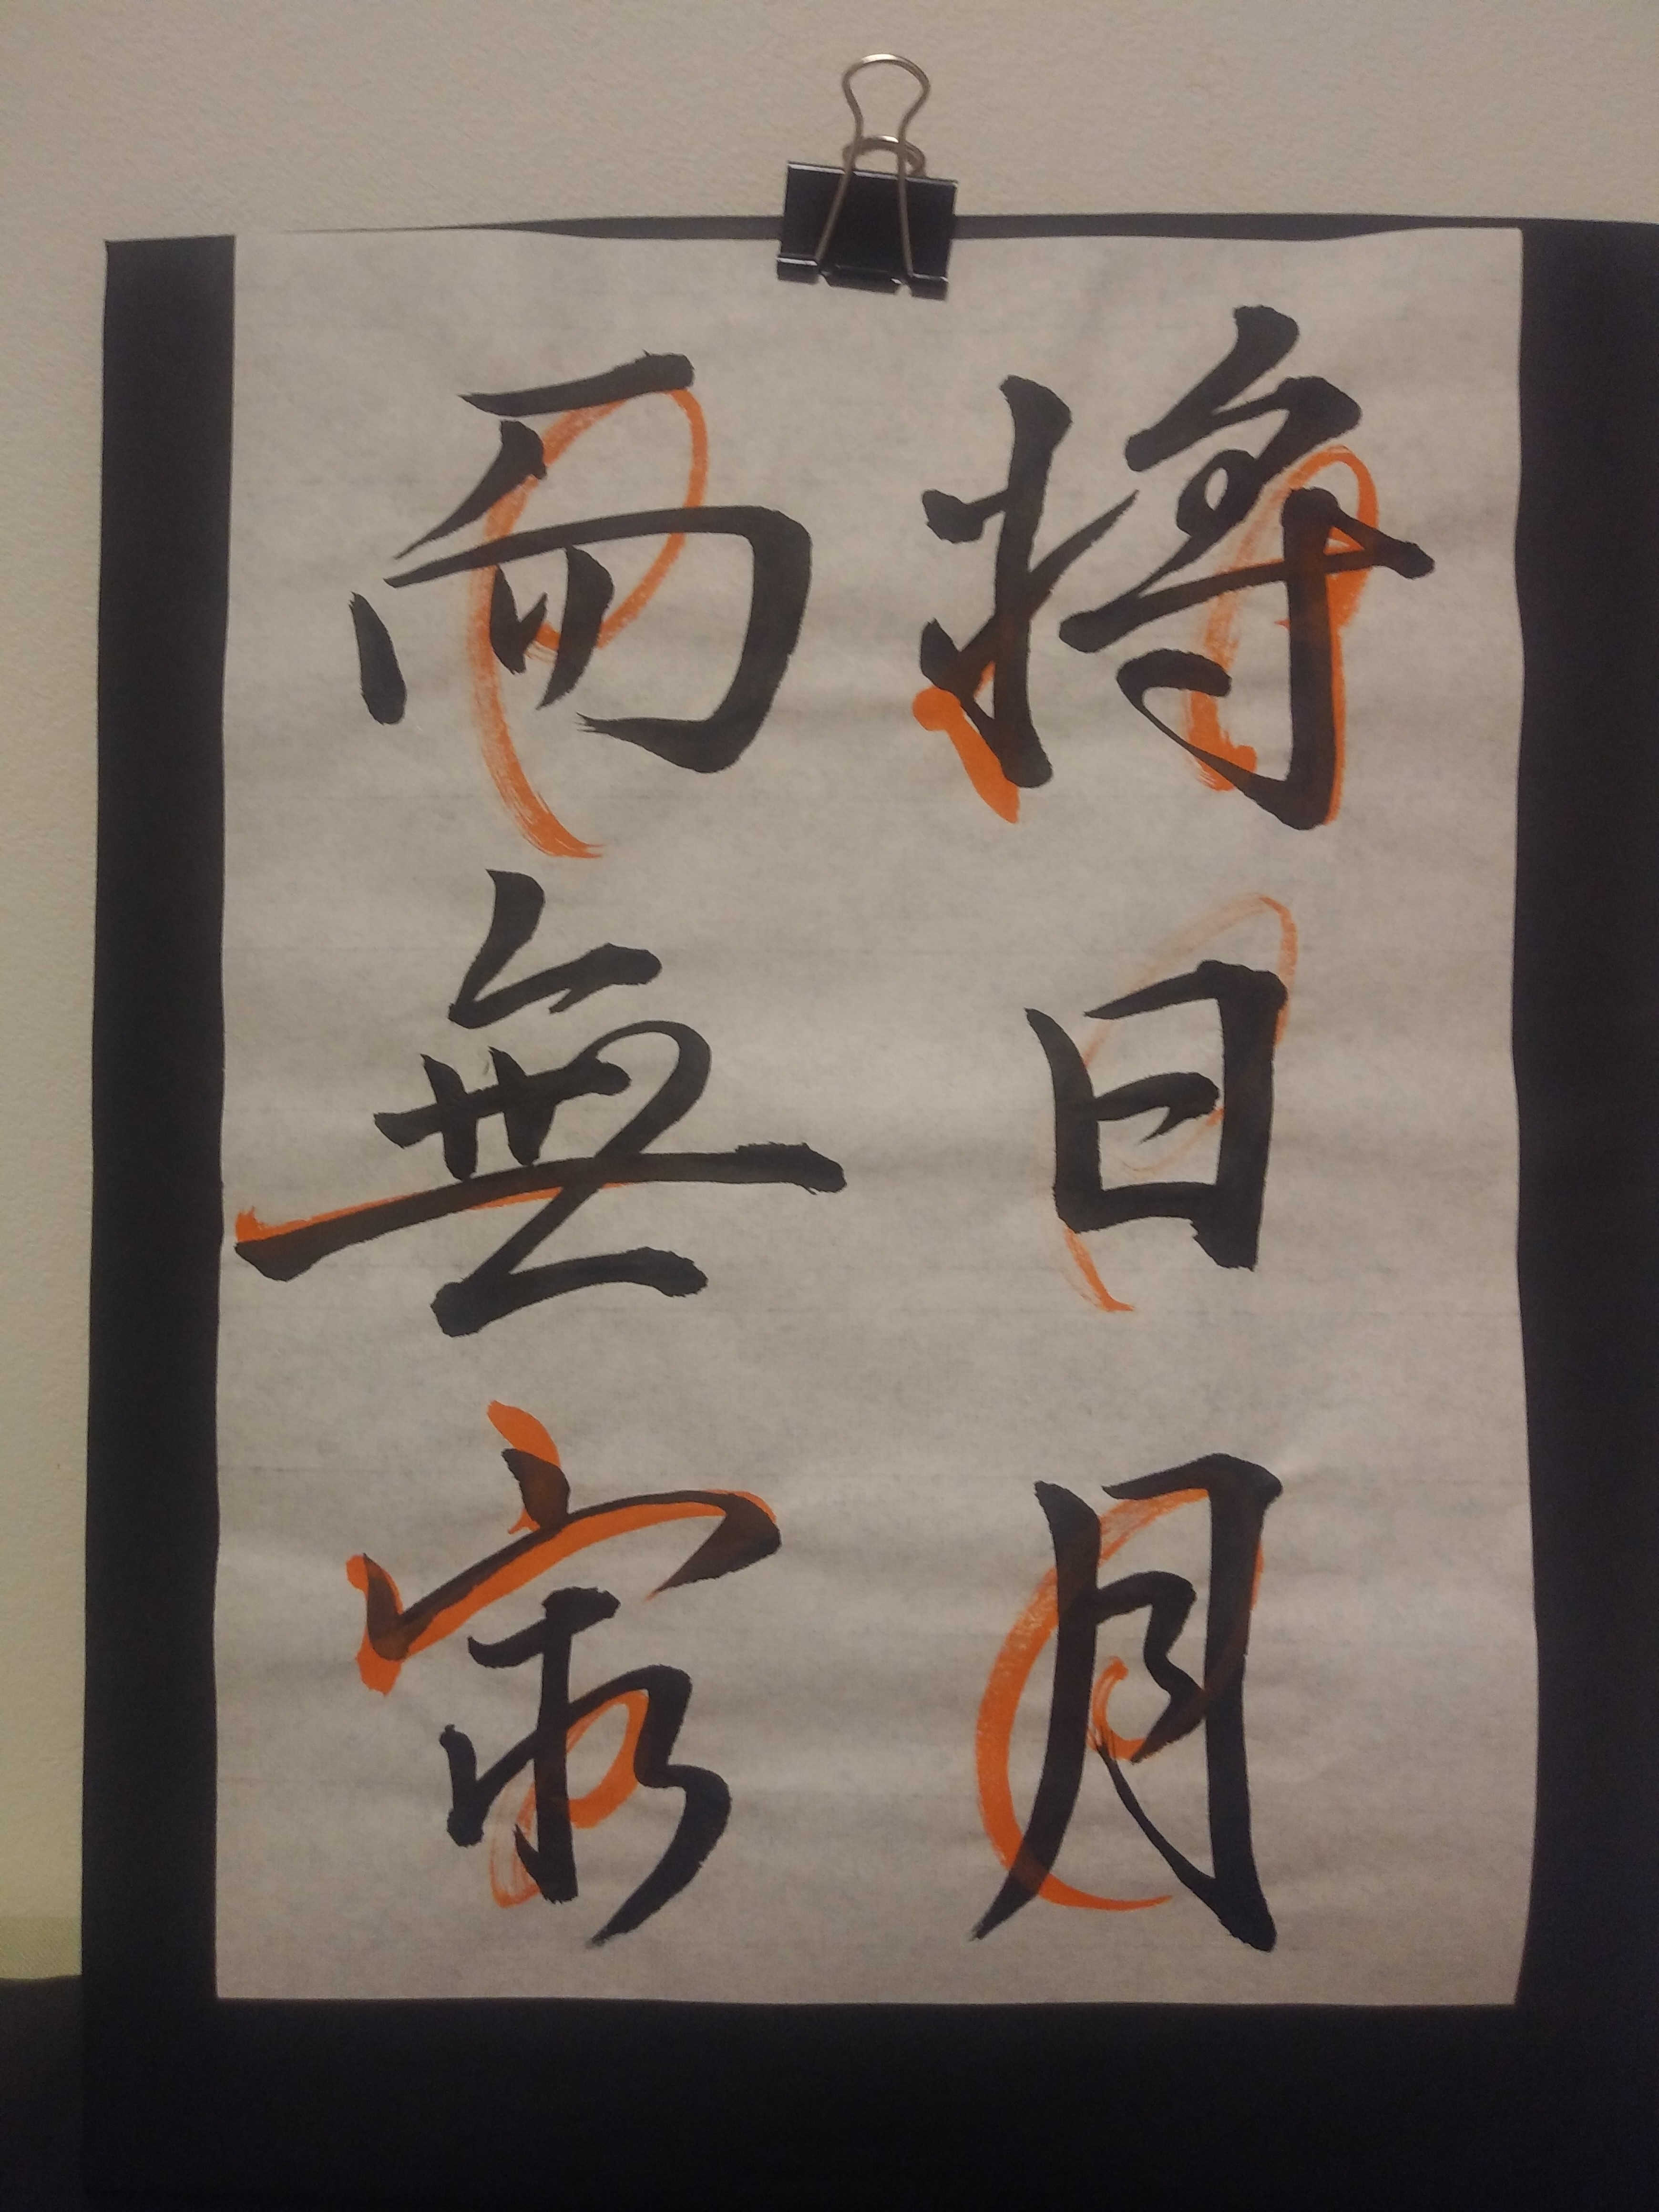 将日月
而無